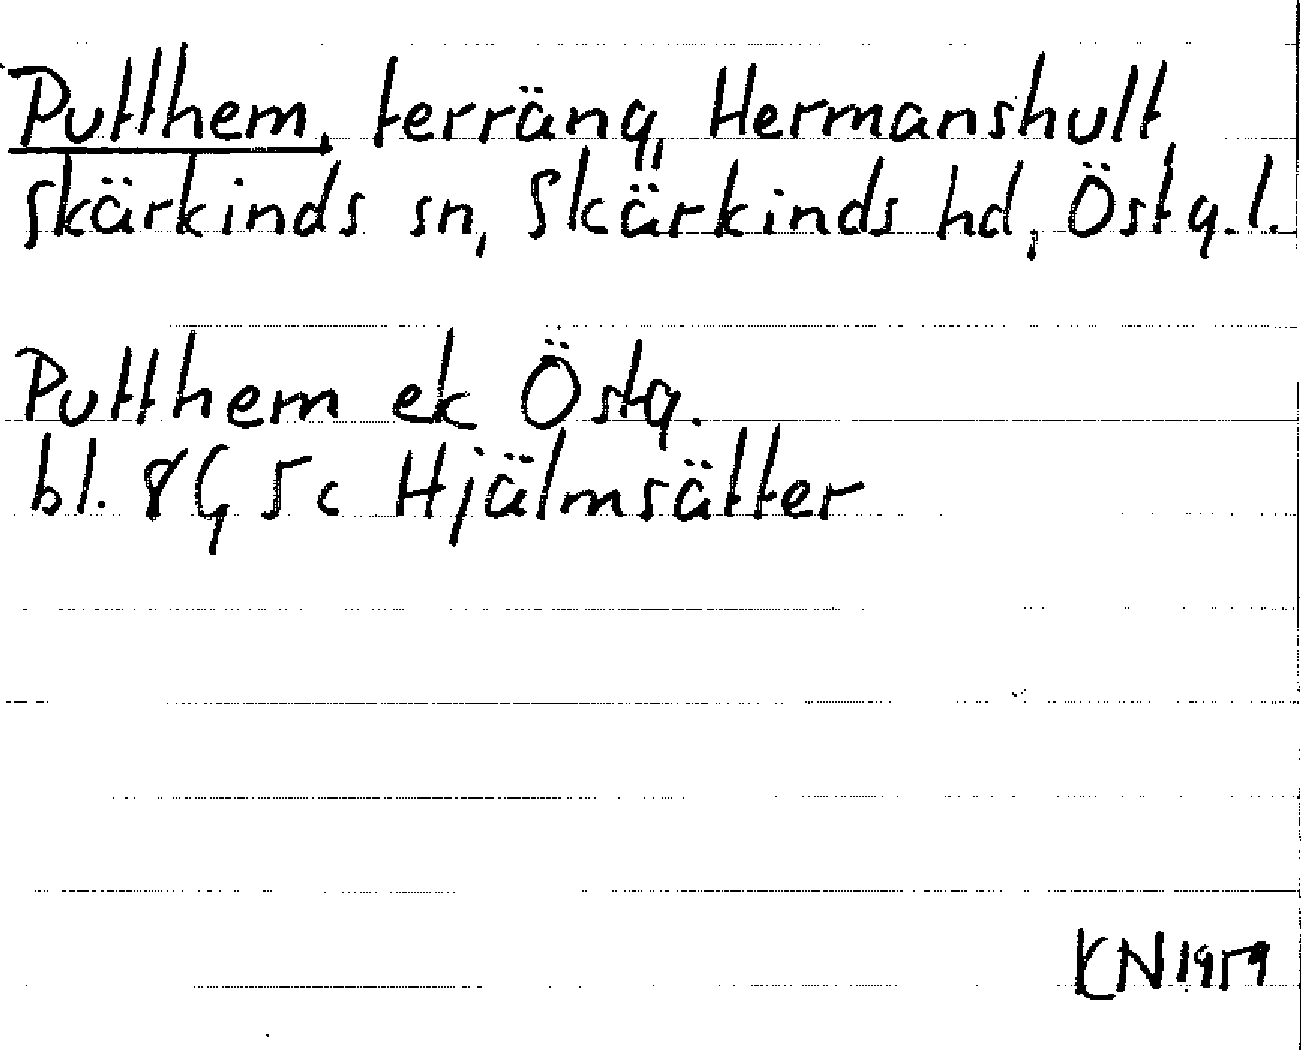 Putthem, terräng, Hermanshult,
Skärkinds sn, Skärkinds hd, Östg.l.
Putthem ek Östg.
bl. 8G 5c Hjälmsätter
KN 1959